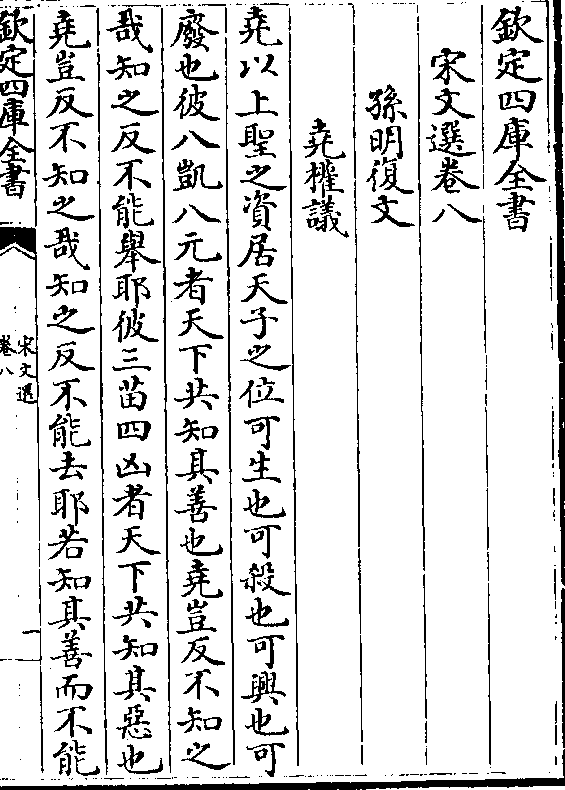 欽定四庫全書
宋文選卷八
孫明復文
堯權議
堯以上聖之資居天子之位可生也可殺也可興也可
廢也彼八凱八元者天下共知其善也堯豈反不知之
哉知之反不能舉耶彼三苗四凶者天下共知其惡也
堯豈反不知之哉知之反不能去耶若知其善而不能
欽定四庫全書
宋文選
卷八
一